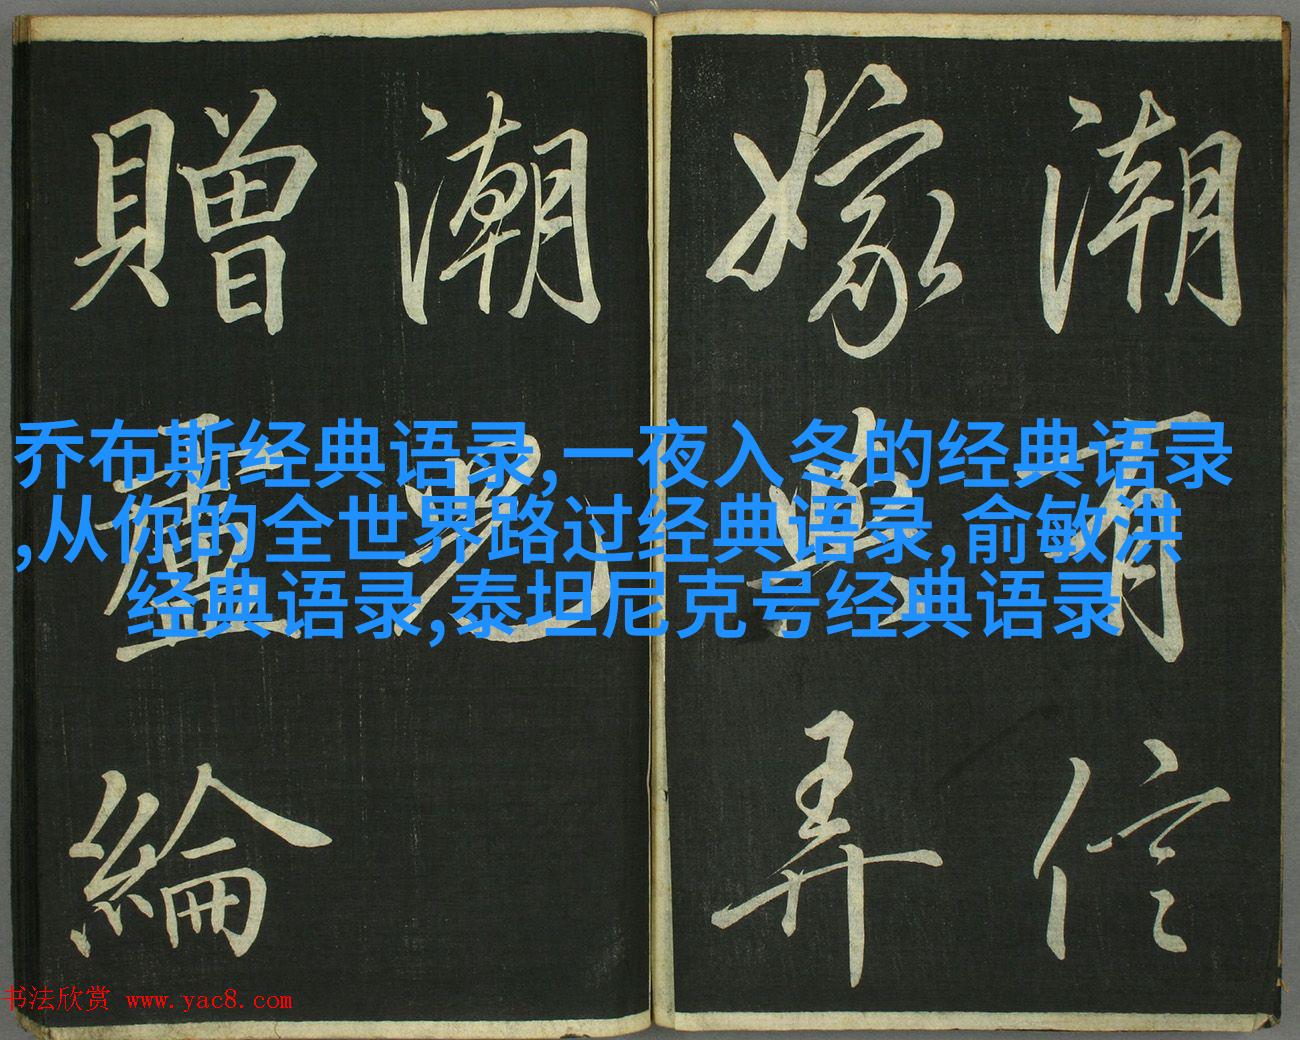 潮有信
嫁與弄
潮兒
贈盧綸
乔布斯经典语录,一夜入冬的经典语录
,从你的全世界路过经典语录,俞敏洪
经典语录,泰坦尼克号经典语录
书法欣赏 www.yac8.com